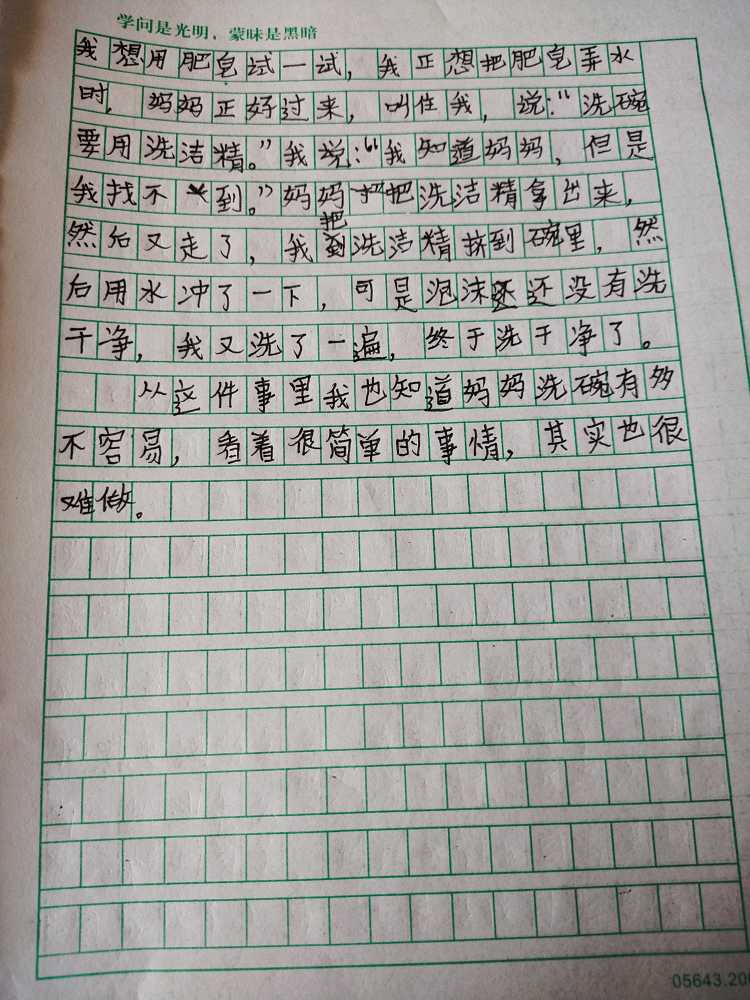 学问是光明，蒙昧是黑暗
我想用肥皂试一试，我正想把肥皂弄水
时，妈妈正好过来，叫住我，说：“洗碗
要用洗洁精。”我说：“我知道妈妈，但是
我找不到。”妈妈把洗洁精拿出来，
然后又走了，我把洗洁精挤到碗里，然
后用水冲了一下，可是泡沫还没有洗
干净，我又洗了一遍，终于洗干净了。
从这件事里我也知道妈妈洗碗有多
不容易，看着很简单的事情，其实也很
难做。
05643.200